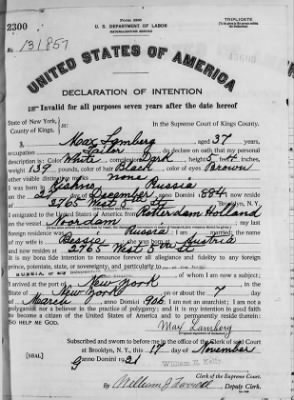 Form 2300
2300
U. S. DEPARTMENT OF LABOR
NATURALIZATION SERVICE
TRIPLICATE
No. 131857
UNITED STATES OF AMERICA
DECLARATION OF INTENTION
Invalid for all purposes seven years after the date hereof
State of New York,
County of Kings. ss: In the Supreme Court of Kings County.
I, Max Lamberg aged 37 years,
occupation Tailor do declare on oath that my personal
description is: Color White complexion Dark height 5 feet 4 inches,
weight 139 pounds, color of hair Black color of eyes Brown
other visible distinctive marks none
I was born in Kishnev Russia
on the 27 day of December anno Domini 1884 I now reside
at 2765 West 5th St Brooklyn, N. Y.
I emigrated to the United States of America from Rotterdam Holland
on the vessel my last
foreign residence was Russia I am married, the name
of my wife is Bessie she was born at Austria
and now resides at 2765 West 5th St
It is my bona fide intention to renounce forever all allegiance and fidelity to any foreign
prince, potentate, state, or sovereignty, and particularly to
of whom I am now a subject;
I arrived at the port of New York in the
State of New York on or about the 7 day
of March anno Domini 1906 I am not an anarchist; I am not a
polygamist nor a believer in the practice of polygamy; and it is my intention in good faith
to become a citizen of the United States of America and to permanently reside therein:
SO HELP ME GOD.
Max Lamberg
Subscribed and sworn to before me in the office of the Clerk of said Court
at Brooklyn, N. Y., this 17 day of November
[SEAL] anno Domini 1921
William E. Kelly
Clerk of the Supreme Court.
By William J. Deputy Clerk.